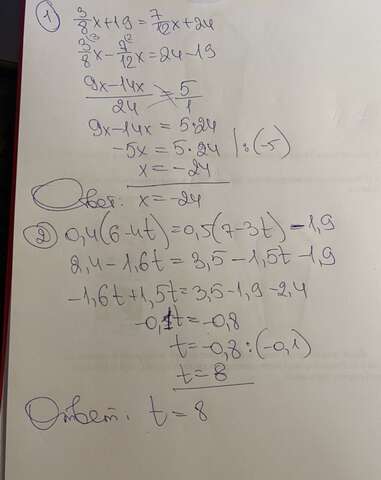 1) 3/8x+19=7/12x+24
3/8³x-7/12²x=24-19
9x-14x/24=5/1
9x-14x=5·24
-5x=5·24 |:(-5)
x=-24
Ответ: x=-24
2) 0,4(6-4t)=0,5(7-3t)-1,9
2,4-1,6t=3,5-1,5t-1,9
-1,6t+1,5t=3,5-1,9-2,4
-0,1t=-0,8
t=-0,8:(-0,1)
t=8
Ответ: t=8